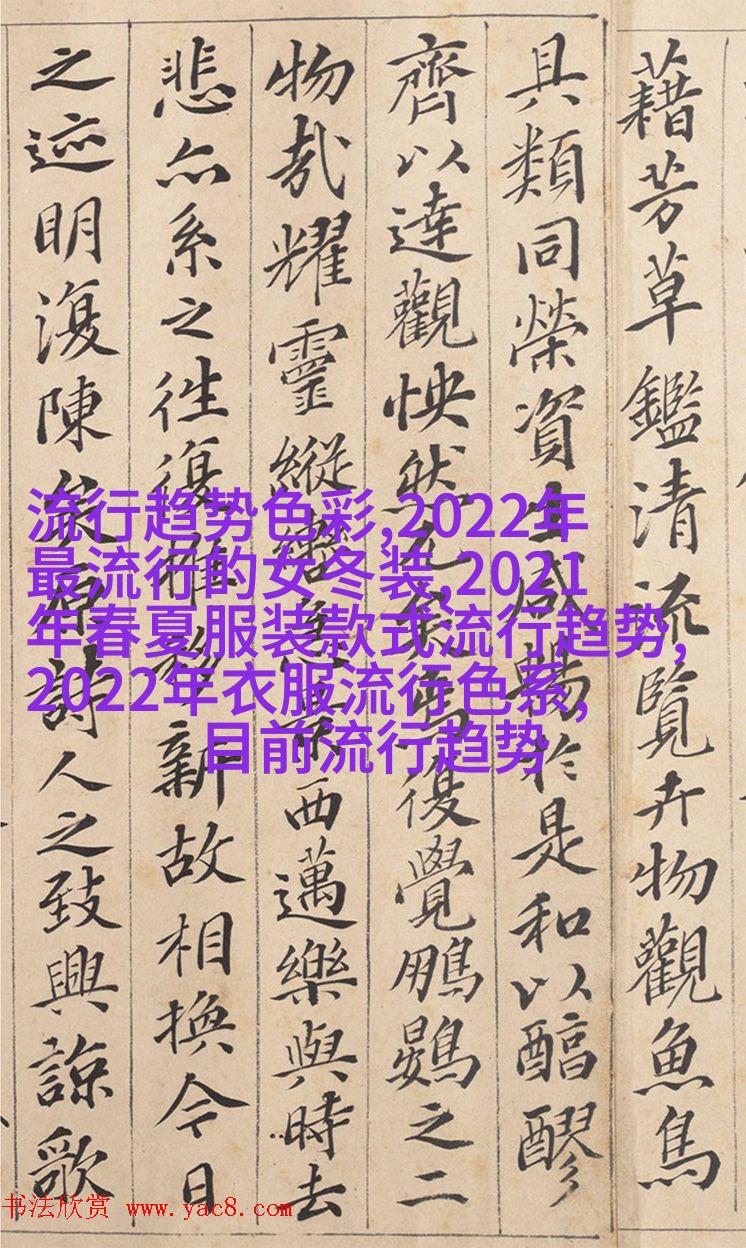 藉芳草鑑清流覽卉物觀魚鳥
具類同榮資生咸暢於是和以醕醪
齊以達觀怏然兀矣焉復覺鵬鷃之二
物哉耀靈縱轡急景西邁樂與時去
悲亦系之往復推移新故相換今日
之迹明復陳矣原詩人之致興諒歌
流行趋势色彩,2022年
最流行的女冬装,2021
年春夏服装款式流行趋势,
2022年衣服流行色系,
目前流行趋势
书法欣赏 www.yac8.com